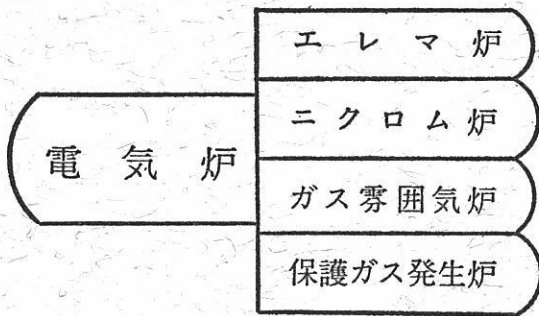 電気炉
エレマ炉
ニクロム炉
ガス雰囲気炉
保護ガス発生炉